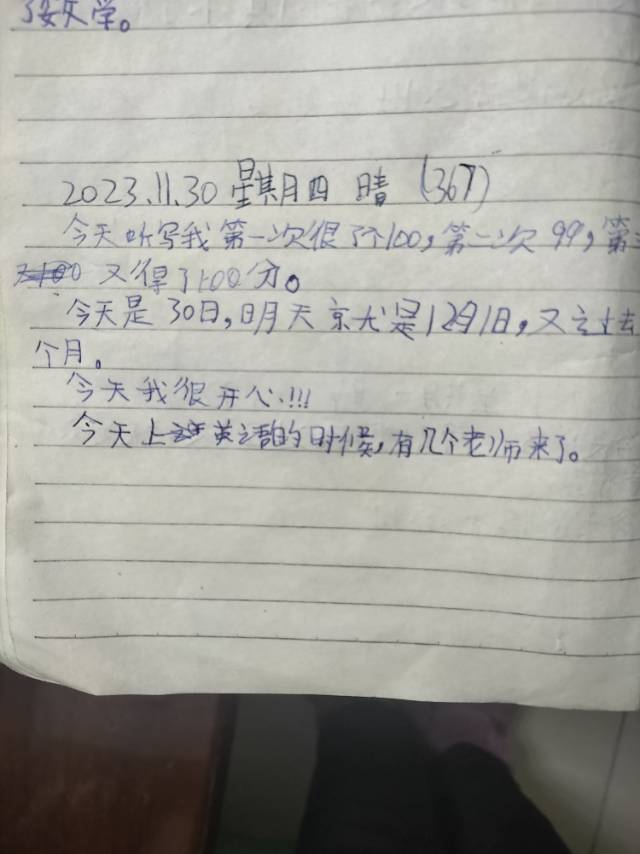 了安久学。
2023.11.30 星期四 晴 (367)
今天听写我第一次很了个100,第二次 99,第三
又得了100分。
今天是 30日,明天就是12月1日,又过去
个月。
今天我很开心!!!
今天上英语的时候,有几个老师来了。